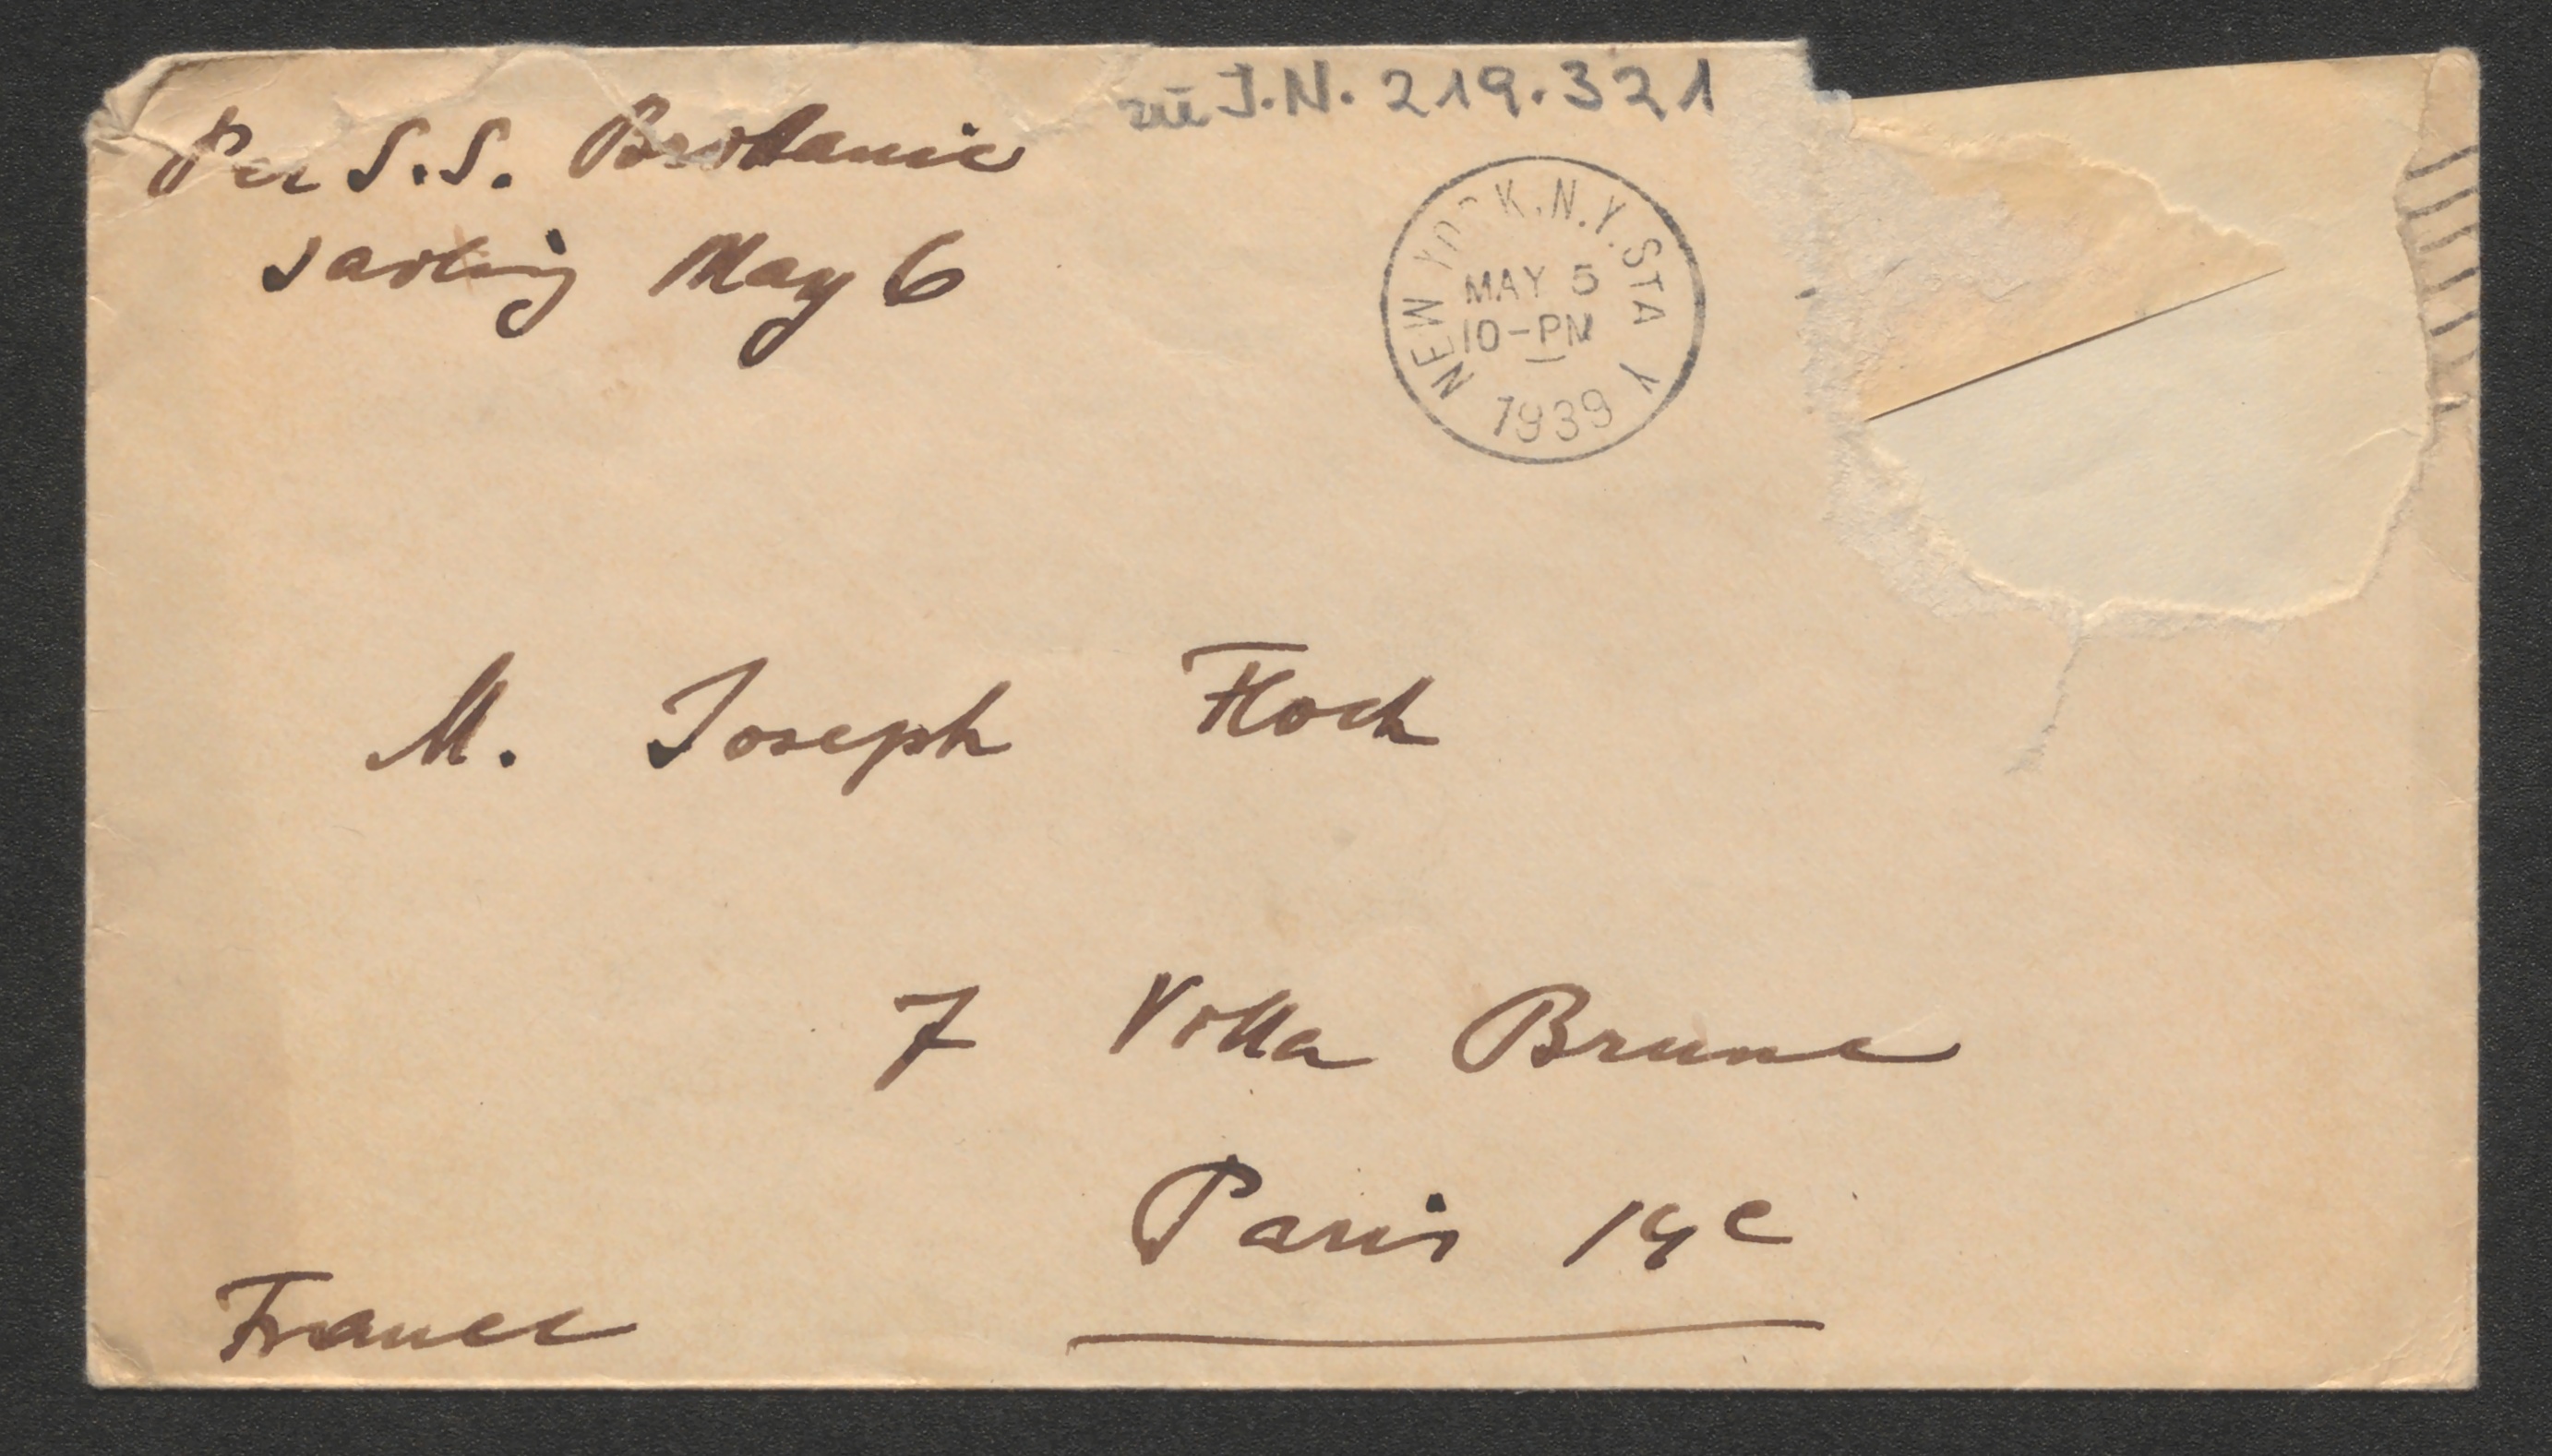 zu J.N. 219.321
Per S.S. Britanic
sailing May 6
NEW YORK, N.Y. STA Y
MAY 5
10-PM
1939
M. Joseph Floch
7 Villa Brune
Paris 14e
France